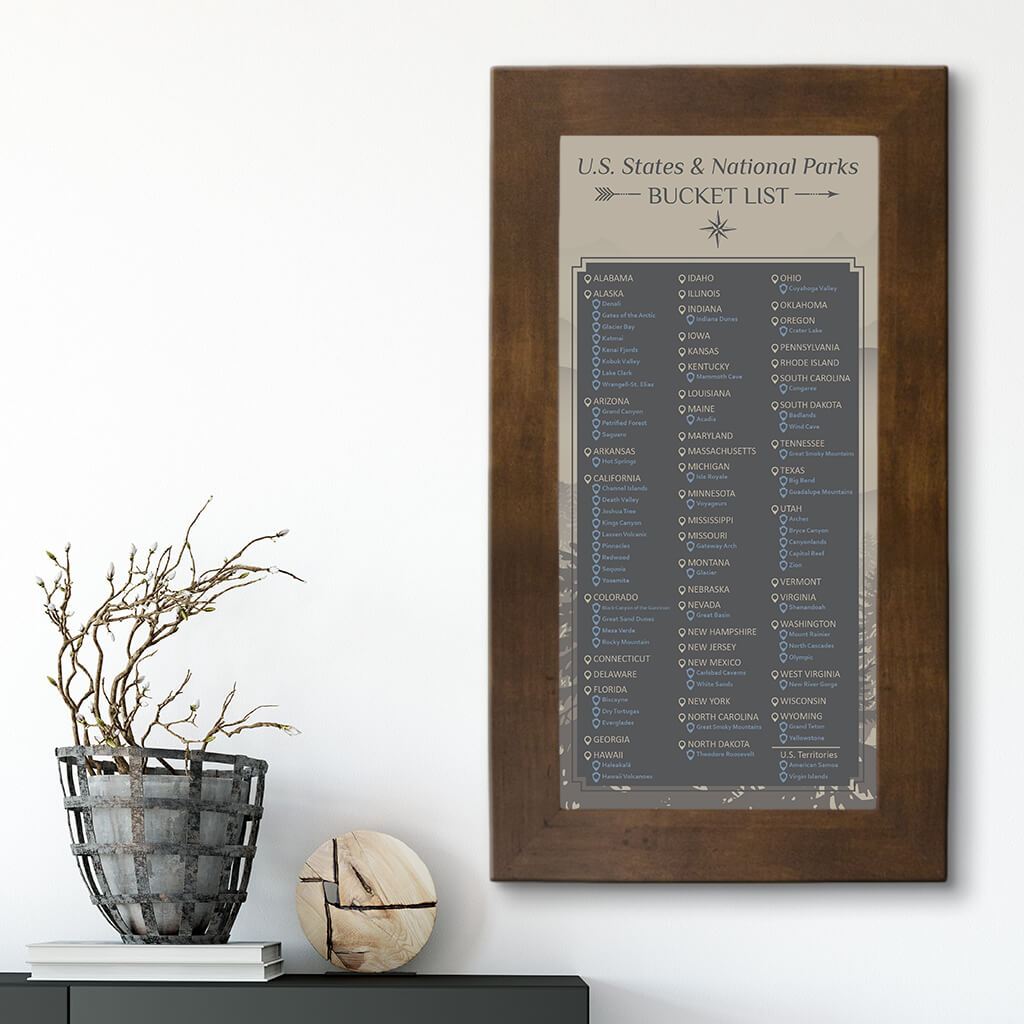 U.S. States & National Parks
BUCKET LIST
ALABAMA
ALASKA
Denali
Gates of the Arctic
Glacier Bay
Katmai
Kenai Fjords
Kobuk Valley
Lake Clark
Wrangell-St. Elias
ARIZONA
Grand Canyon
Petrified Forest
Saguaro
ARKANSAS
Hot Springs
CALIFORNIA
Channel Islands
Death Valley
Joshua Tree
Kings Canyon
Lassen Volcanic
Pinnacles
Redwood
Sequoia
Yosemite
COLORADO
Black Canyon of the Gunnison
Great Sand Dunes
Mesa Verde
Rocky Mountain
CONNECTICUT
DELAWARE
FLORIDA
Biscayne
Dry Tortugas
Everglades
GEORGIA
HAWAII
Haleakalā
Hawaii Volcanoes
IDAHO
ILLINOIS
INDIANA
Indiana Dunes
IOWA
KANSAS
KENTUCKY
Mammoth Cave
LOUISIANA
MAINE
Acadia
MARYLAND
MASSACHUSETTS
MICHIGAN
Isle Royale
MINNESOTA
Voyageurs
MISSISSIPPI
MISSOURI
Gateway Arch
MONTANA
Glacier
NEBRASKA
NEVADA
Great Basin
NEW HAMPSHIRE
NEW JERSEY
NEW MEXICO
Carlsbad Caverns
White Sands
NEW YORK
NORTH CAROLINA
Great Smoky Mountains
NORTH DAKOTA
Theodore Roosevelt
OHIO
Cuyahoga Valley
OKLAHOMA
OREGON
Crater Lake
PENNSYLVANIA
RHODE ISLAND
SOUTH CAROLINA
Congaree
SOUTH DAKOTA
Badlands
Wind Cave
TENNESSEE
Great Smoky Mountains
TEXAS
Big Bend
Guadalupe Mountains
UTAH
Arches
Bryce Canyon
Canyonlands
Capitol Reef
Zion
VERMONT
VIRGINIA
Shenandoah
WASHINGTON
Mount Rainier
North Cascades
Olympic
WEST VIRGINIA
New River Gorge
WISCONSIN
WYOMING
Grand Teton
Yellowstone
U.S. Territories
American Samoa
Virgin Islands